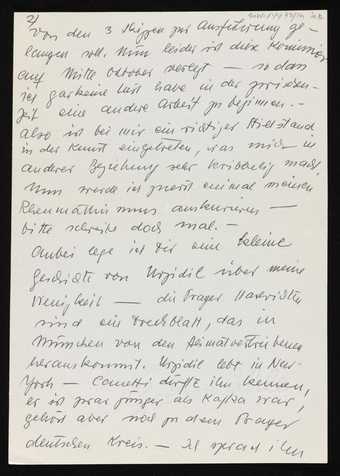 2)
von den 3 Skizzen zur Ausführung ge-
langen soll. Nun leider ist diese Kommission
auf Mitte Oktober verlegt — so dass
ich gar keine Lust habe in der zwischen-
zeit eine andere Arbeit zu beginnen. -
also ist bei mir ein richtiger Stillstand
in der Kunst eingetreten, was mich in
anderer Beziehung sehr kribbelig macht.
Nun werde ich zuerst einmal meinen
Rheumathismus auskurieren —
bitte schreibe doch mal. -
Anbei lege ich Dir eine kleine
Geschichte von Urzidil über meine
Wenigkeit — die Prager Nachrichten
sind ein Drecksblatt, das in
München von den Heimatvertriebenen
herauskommt. Urzidil lebt in New-
York — Canetti dürfte ihn kennen,
er ist zwar jünger als Kafka war,
gehört aber noch zu dem Prager
deutschen Kreis. — Ich sprach ihn